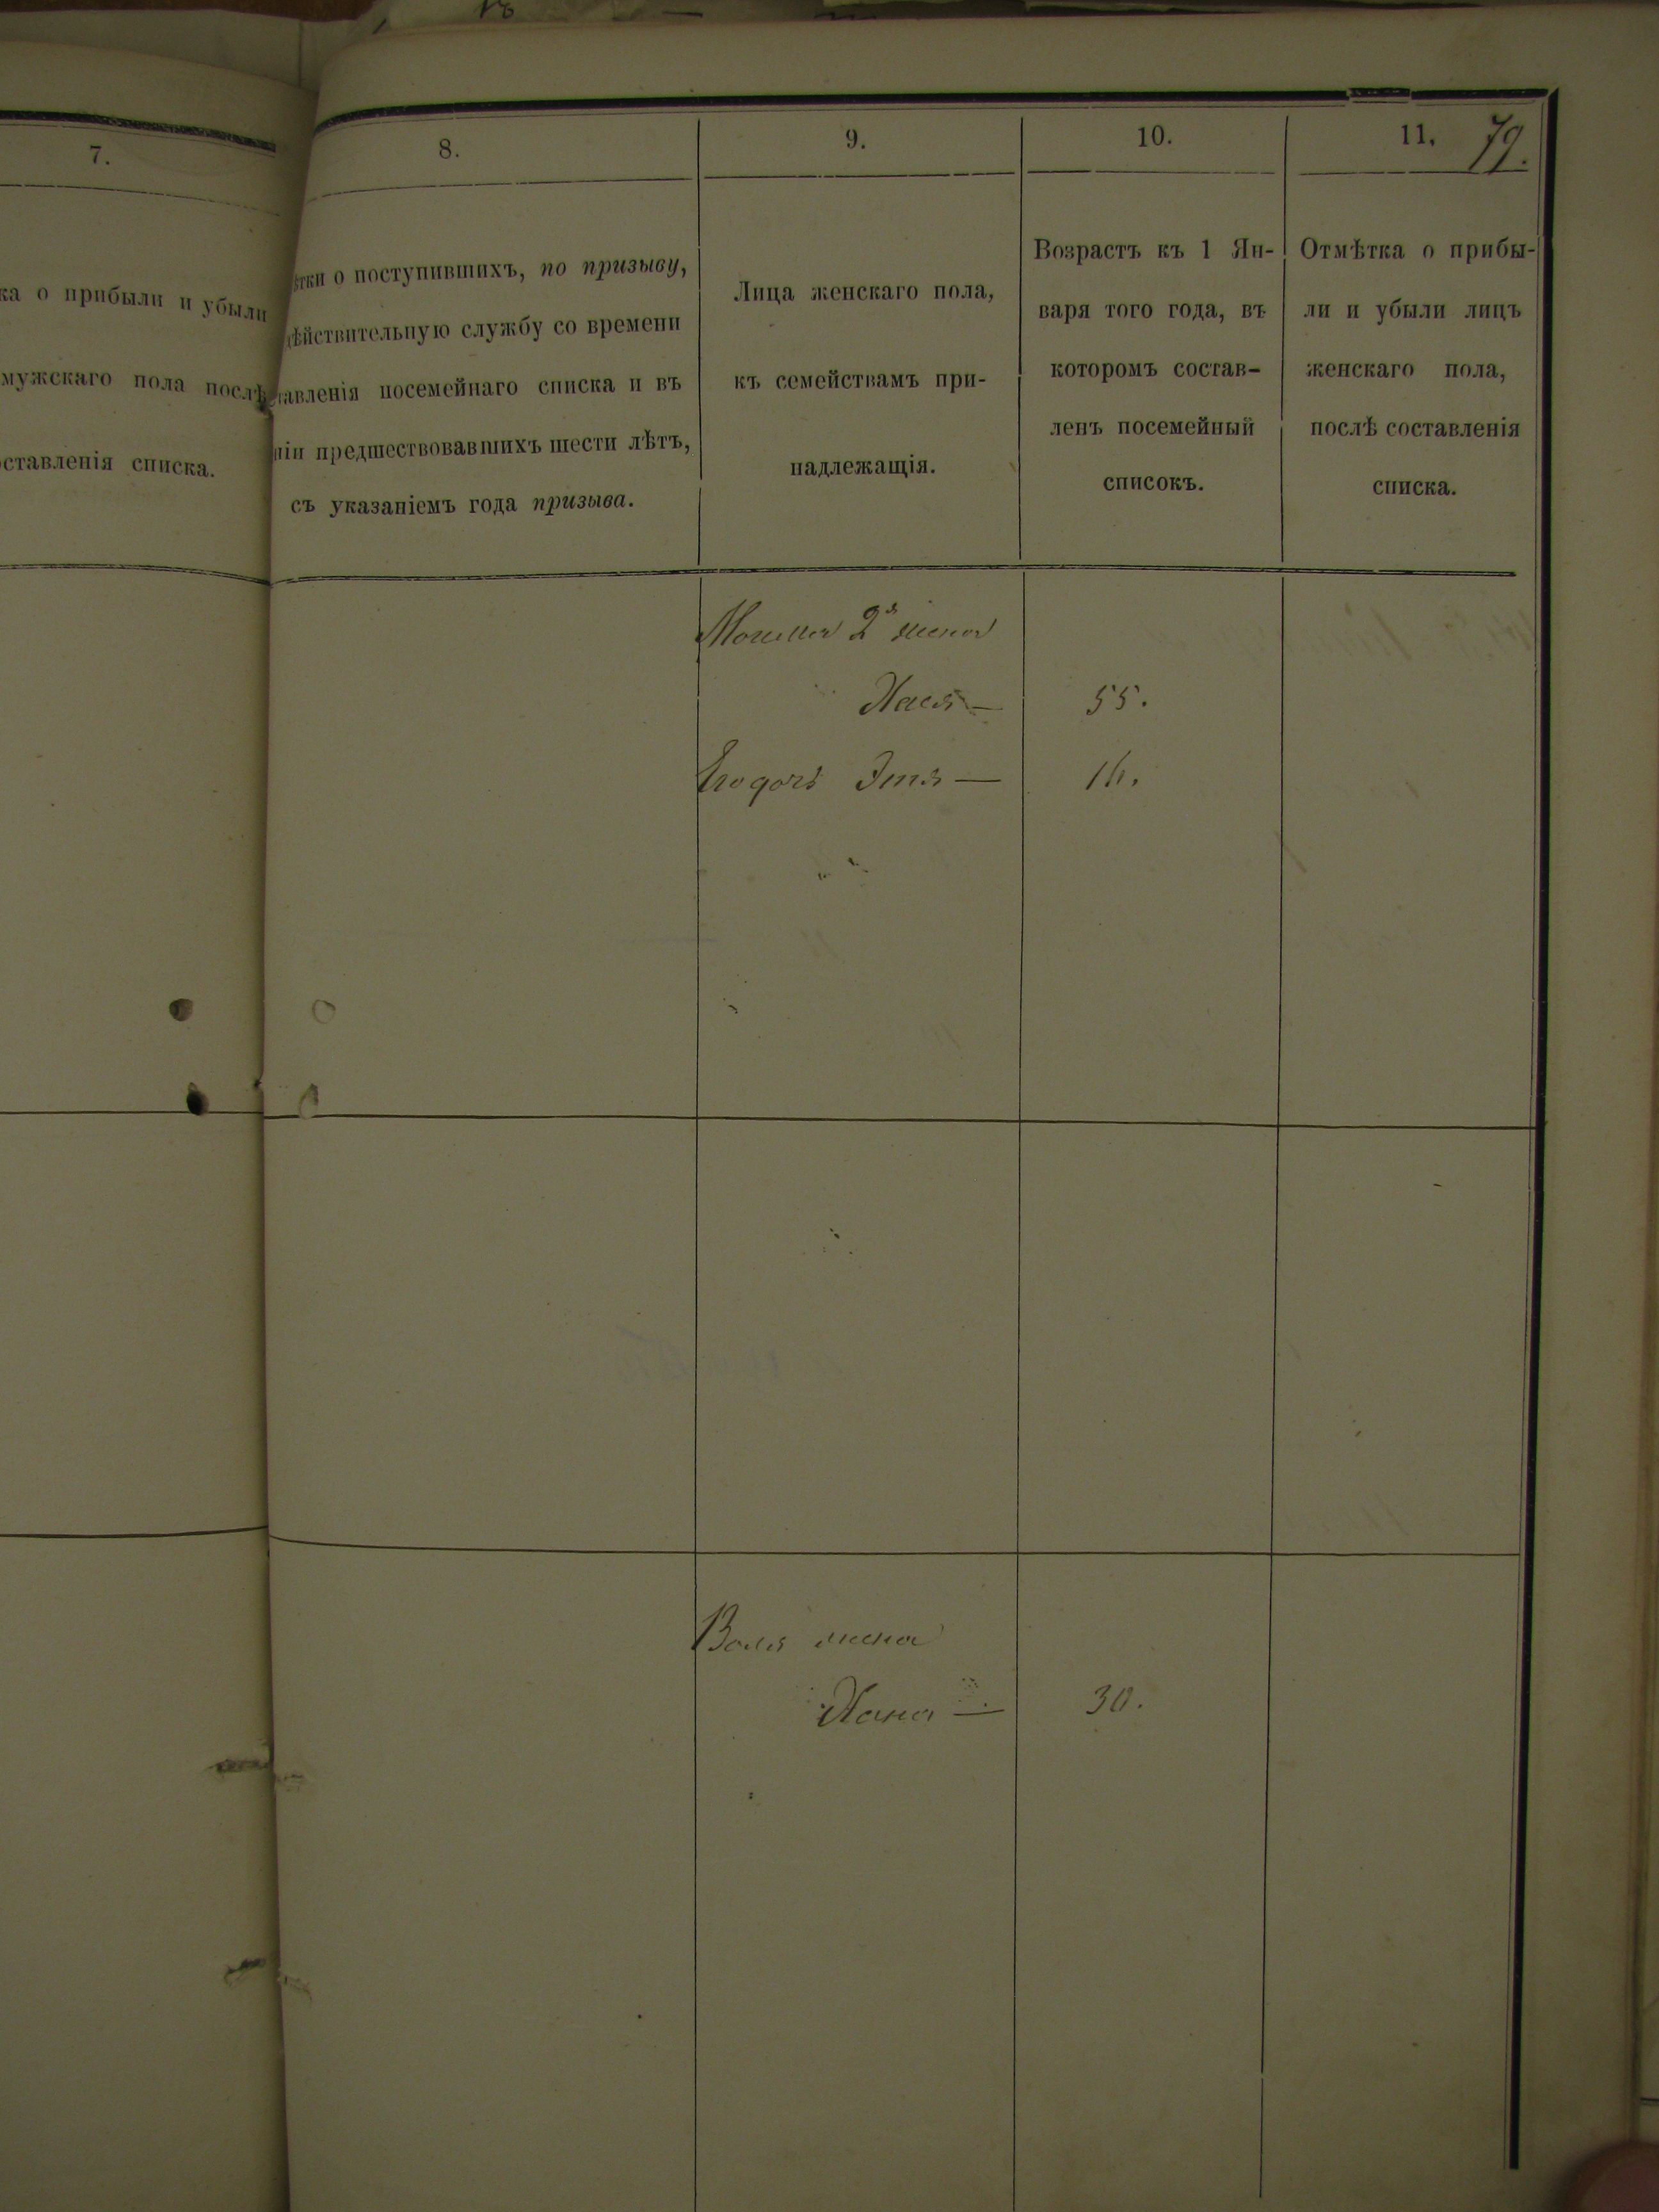 79.
7.
ка о прибыли и убыли
мужскаго пола послѣ
оставленія списка.
8.
ѣтки о поступившихъ, по призыву,
дѣйствительную службу со времени
тавленія посемейнаго списка и въ
ніи предшествовавшихъ шести лѣтъ,
съ указаніемъ года призыва.
9.
Лица женскаго пола,
къ семействамъ при-
надлежащія.
10.
Возрастъ къ 1 Ян-
варя того года, въ
которомъ состав-
ленъ посемейный
списокъ.
11.
Отмѣтка о прибы-
ли и убыли лицъ
женскаго пола,
послѣ составленія
списка.
2я жена
Хася —
55.
Его дочь Этя —
16.
жена
Хана —
30.